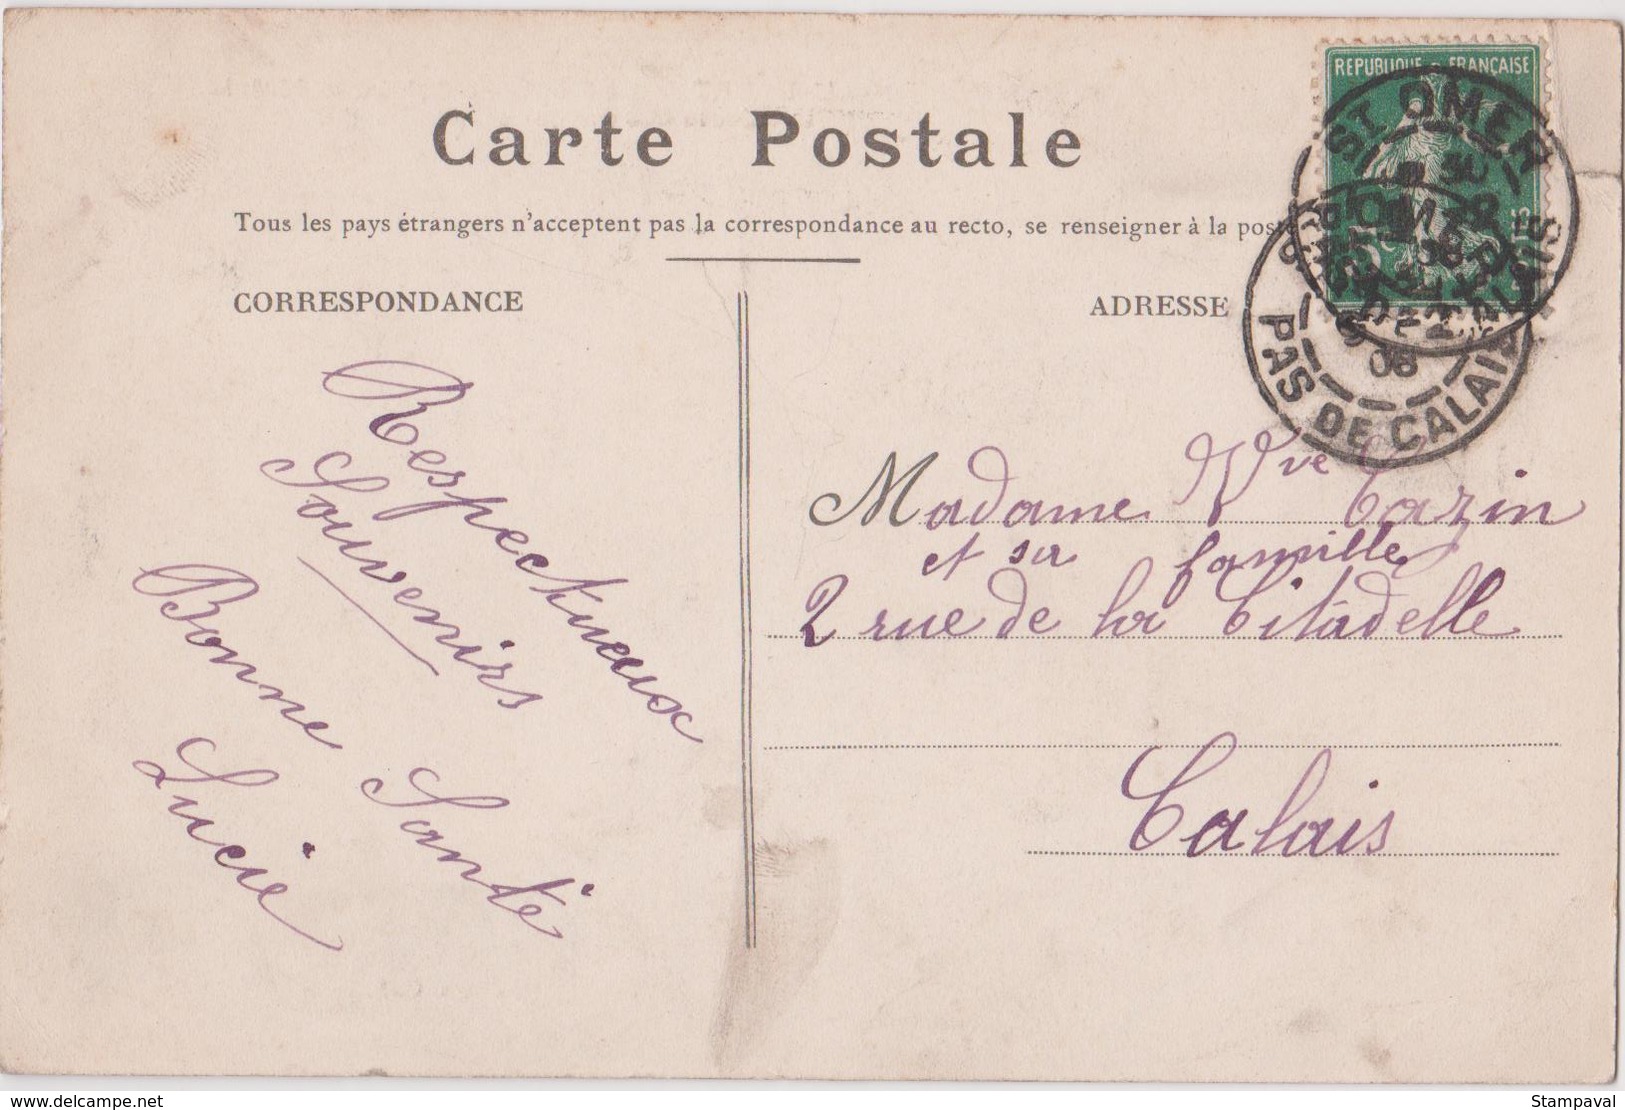 Carte Postale
Tous les pays étrangers n'acceptent pas la correspondance au recto, se renseigner à la poste
CORRESPONDANCE
ADRESSE
REPUBLIQUE FRANÇAISE
ST OMER
PAS DE CALAIS
08
Respectueux
Souvenirs
Bonne Santé
Lucie
Madame Vve Cazin
et sa famille
2 rue de la Citadelle
Calais
delcampe.net
Stampaval